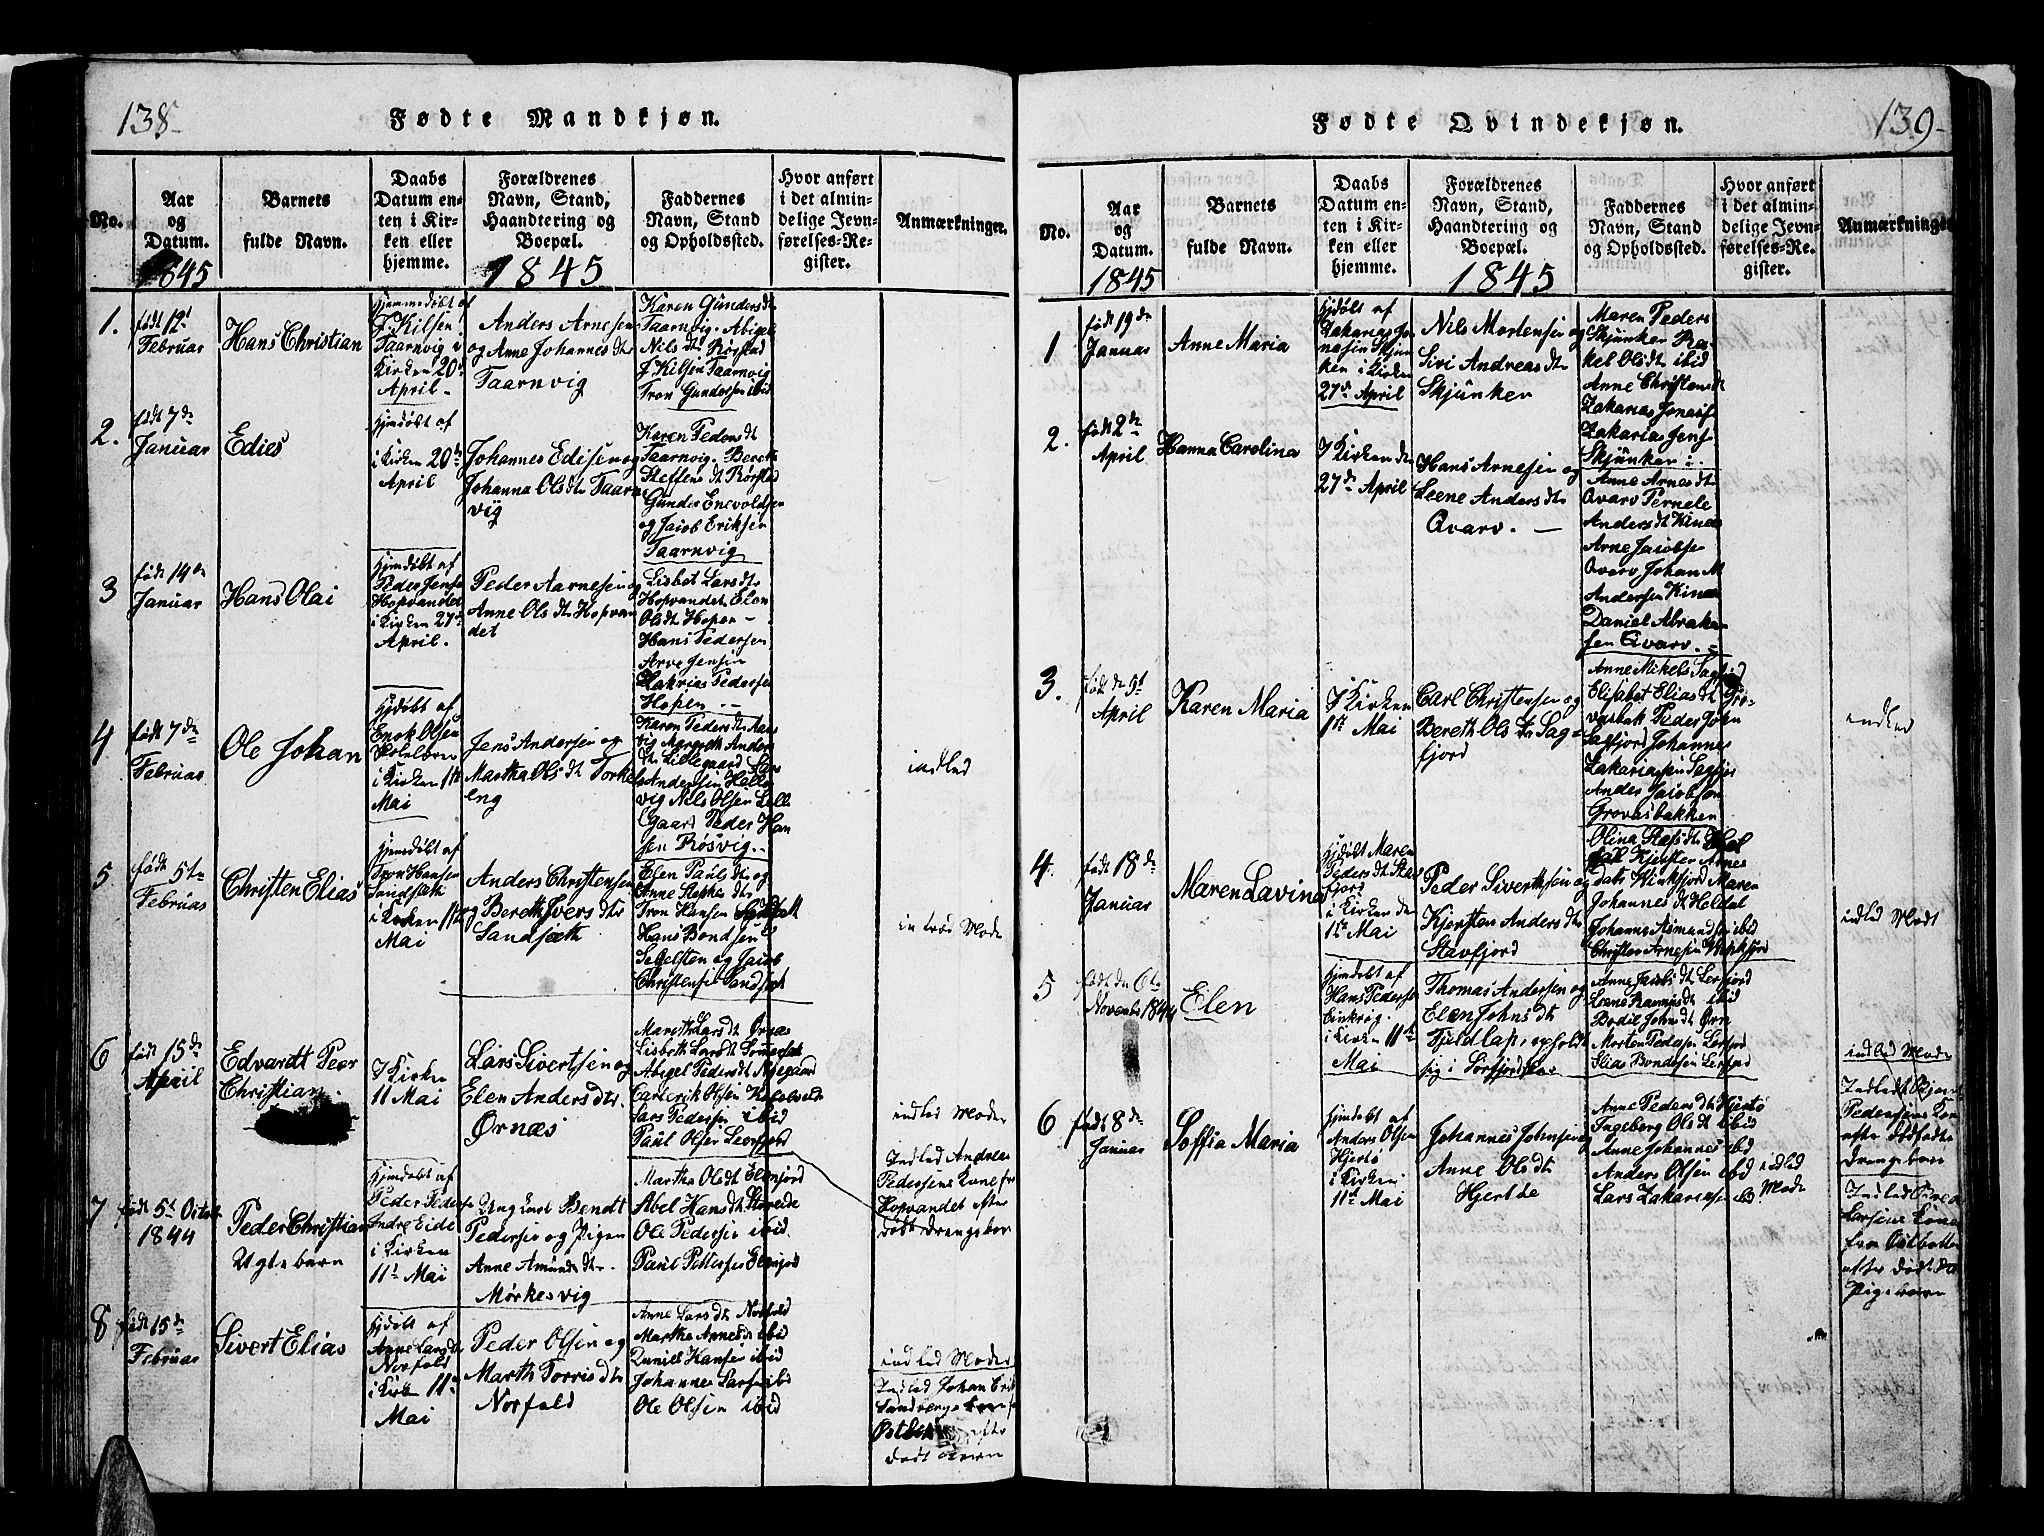 138.
Fødte Mandkjøn.
No.
Aar
og
Datum.
1845
Barnets
fulde Navn.
Daabs
Datum en-
ten i Kir-
ken eller
hjemme.
Forældrenes
Navn, Stand,
Haandtering og
Boepæl.
1845
Faddernes
Navn, Stand
og Opholdssted.
Hvor anført
i det almin-
delige Jevn-
førelses-Re-
gister.
Anmærkninger.
1.
født 12t
Februar
Hans Christian
Hjemmedøbt af
J. Kilsen
Taarnvig i
Kirken 20d
April
Anders Arnesen
og Anne Johannes dtr
Taarnvig
Karen Gunders dt
Taarnvig. Abigel
Nils dt Røsstad
J. Kilsen Taarnvig
Tron Gundersen ibid
2.
født 7de
Januar
Edies
Hjmdøbt af
i Kirken 20d
April
Johannes Edisen og
Johanna Ols dt Taarn
vig
Karen Peders dt
Taarnvig. Bereth
Steffens dt Rørstad
Gunder Enevoldsen
og Jacob Eriksen
Taarnvig
3
født 14de
Januar
Hans Olai
Hjemdøbt af
Peder Jensen
Hopvandet
i Kirken 27de
April.
Peder Aarnesen og
Anne Ols dtr Hopvan
det
Lisbet Lars dtr
Hopvandet Elen
Ols dt Hopen
Hans Pedersen
Arve Jensen
Zakrias Pedersen
Hopen
4
født 7de
Februar
Ole Johan
Hjdøbt af
Enok Olsen
i Kirken 1te
Mai
Jens Andersen og
Martha Ols dt Torkel
eng
Karen Peders dt
vig Mareth Anders
dt Lillegaard
Andersen Hells
vig Nils Olsen Lille
gaard Peder Han
sen Røsvig
indled
5
født 5te
Februar
Christen Elias
Hjemdøbt af
Tron Hansen
Sandsæth
i Kirken 11te
Mai
Anders Christensen
og Bereth Ivers dtr
Sandsæth
Elen Pauls dtr og
Anne Stephas dtr
Tron Hansen Sandsæth
Hans Bondsen
Segelsten og Jacob
Christensen Sandsæt
introd Mode
6
født 15de
April
Edvardt Peer
Christian
I Kirken
11 Mai
Lars Sivertsen og
Elen Anders dtr.
Ørnæs
Mareth Lars dt Ørnæs
Lisbeth Lars dt
Abigel Peders dt Nygaard
Carl erik Olsen
Lars Pedersen ibid
Paul Olsen Leerfjord
indled Moder
Indled Andreas
Pedersens Kone fra
Hopvandet efter
død Drengebar
7
født 5t Octob
1844
Peder Christian
Ugte barn
Hjemdøbt af
Peder Peders
Andre Eide
i Kirken
11t Mai
Ungkarl Bendt
Pedersen og Pigen
Anne Amunds dtr.
Mørkesvig
Martha Ols dt Elvefjord
Abel Hans dt Storeide
Ole Pedersen ibid.
Paul Pettersen Elvefjord
8
født 15de
Februar
Sivert Elias
Hjdøbt af
Anne Lars dt
Norfold
i Kirken 11te
Mai
Peder Olsen og
Marth Torris dtr
Norfold
Anne Lars dt Norfold
Martha Arnes dt ibid
Daniell Hansen ibid
Johannes Larsen ibid
Ole Olsen ibid
indled Moder
Indled Johan Erik
efter
dødt Barn
139.
Fødte Qvindekjøn.
No.
Aar
og
Datum.
1845
Barnets
fulde Navn.
Daabs
Datum en-
ten i Kir-
ken eller
hjemme.
Forældrenes
Navn, Stand,
Haandtering og
Boepæl.
1845
Faddernes
Navn, Stand
og Opholdssted.
Hvor anført
i det almin-
delige Jevn-
førelses-Re-
gister.
Anmærkninger
1
født 19de
Januar
Anne Maria
Hjdøbt af
Zakarias Jo
nasen Skjun
ken i Kirken
27de April
Nils Mortensen og
Sivi Andreas dtr
Skjunken
Maren Peders
Skjunken Ra
kel Ols dt ibid
Anne Christens dt
Zakarias Jonass
Zakarias Jens
Skjunken
2.
født 2de
April
Hanna Carolina
I Kirken de
27de April
Hans Arnesen og
Leene Anders dtr
Qvarv.
Anne Arnes dtr
Qvarv Pernele
Anders dt Kines
Arne Jacobsen
Qvarv Johan M
Andersen Kines
Daniel Abraham
sen Qvarv.
3.
født d 9t
April
Karen Maria
I Kirken
1te Mai
Carl Christensen og
Bereth Ols dtr Sag
fjord
Anne Mikels Sagfjord
Elisabet Elias dt Gro
vasbak Peder John
Sagfjord Johannes
Zakariassen Sagfjor
Anders Jacobsen
Grovasbakken
indled
4.
født 18de
Januar
Maren Lavina
Hjdøbt Maren
Peders dt Stav
fjord
i Kirken de
1te Mai
Peder Siverthsen og
Kjersten Anders dtr
Stavfjord
Olina Stass dt Hel
dal Kjersten Arnes
datr Vinkfjord Maren
Johannes dt Heldal
Johannes Asmundsen ibid
Christen Arnesen Vinkfjord
indled Modr
5
født d 6te
Novembr 1844
Elen
Hjemdøbt af
Hans Pederse
Einkrog.
i Kirken 11te
Mai
Thomas Andersen og
Elen Johns dtr
Fjeldlap, opholdt
sig i Sørfjordskar
Anne Jacobs dt Lerfjord
Leene Rasmus dt ibid
Bodil Johns dt Ørn
Morten Pedersen Lerfjord
Elias Bondesen Lerfjord
indled Mode
Indledt Bjørn
Pedersens Kone
efter dødfødt
Drengebarn
6
født 8de
Januar
Soffia Maria
Hjemdøbt af
Anders Olsen
Hjertø
i Kirken
11te Mai
Johannes Johnsen og
Anne Ols dtr
Hjertøe
Anne Peders dt Hjertø
Ingeborg Ols dt ibid
Anne Johannes ibid
Anders Olsen ibid
Lars Zakariasen ibd
indled
Mode
Larsens Kone
fra Østbotten
efter død
Pigebarn